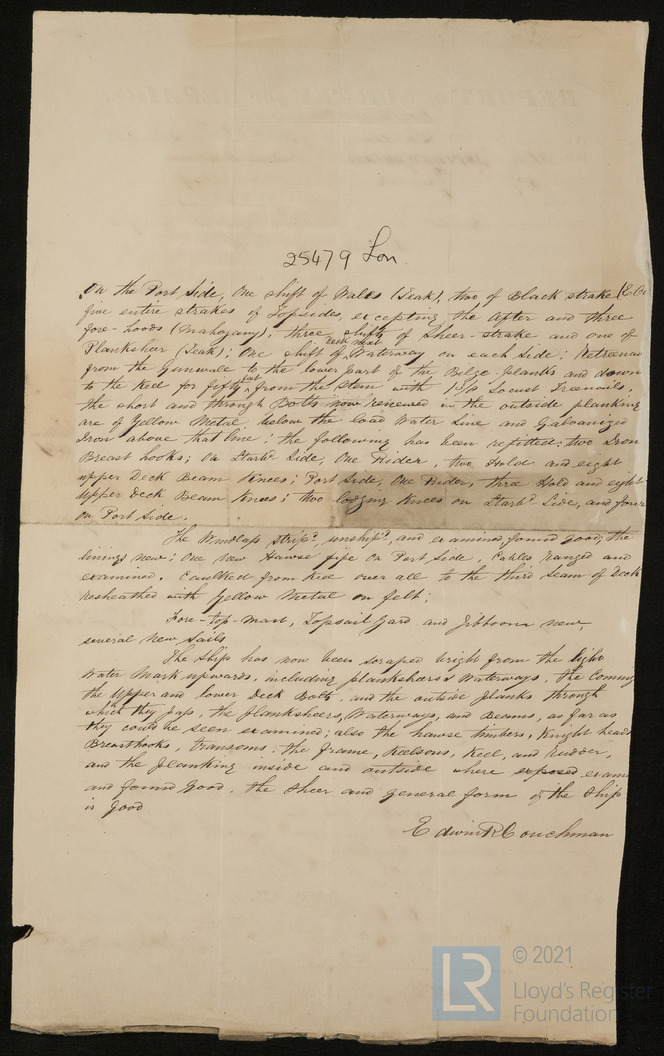 25479 Lon.
On the Port Side, One shift of Wales (Teak), two of Black strake
five entire strakes of Topsides, excepting the after and three
fore-hoods (Mahogany), three shifts of Sheer-strake and one of
Planksheer (Teak); One shift of Teak next Waterway on each Side;
from the Gunwale to the lower part of the Bilge planks and down
to the Keel for fifty feet from the Stem with 1 3/8 Locust Treenails,
the short and through Bolts now renewed in the outside planking
are of Yellow Metal below the load Water Line and Galvanized
Iron above that line; the following has been refitted; two Iron
Breast hooks; On Starbd Side, One Rider, two Hold and eight
upper Deck Beam Knees; Port Side, One Rider, three Hold and eight
Upper deck Beam Knees; two lodging Knees on Starbd Side, and four
on Port Side.
The Windlass stripd, unshipd, and examined, found good, the
linings new; One new Hawse pipe On Port Side, Cables ranged and
examined. Caulked from Keel over all to the third Seam of Deck
resheathed with Yellow Metal on felt;
Fore-top-mast, Topsail Yard and Jibboom new,
several new Sails
The Ship has now been scraped bright from the light
Water Mark upwards, including planksheers & Waterways, the Coming
the Upper and lower Deck Bolts, and the outside planks through
which they pass, the planksheers, Waterways, and Beams, as far as
they could be seen examined; also the hawse timbers, Knight heads
Breasthooks, Transoms, the frame, Keelsons, Keel, and Rudder,
and the planking inside and outside where exposed exam
and found good. the Sheer and general form of the Ship
is good
Edwin R Couchman
LR
© 2021
Lloyd's Register
Foundation